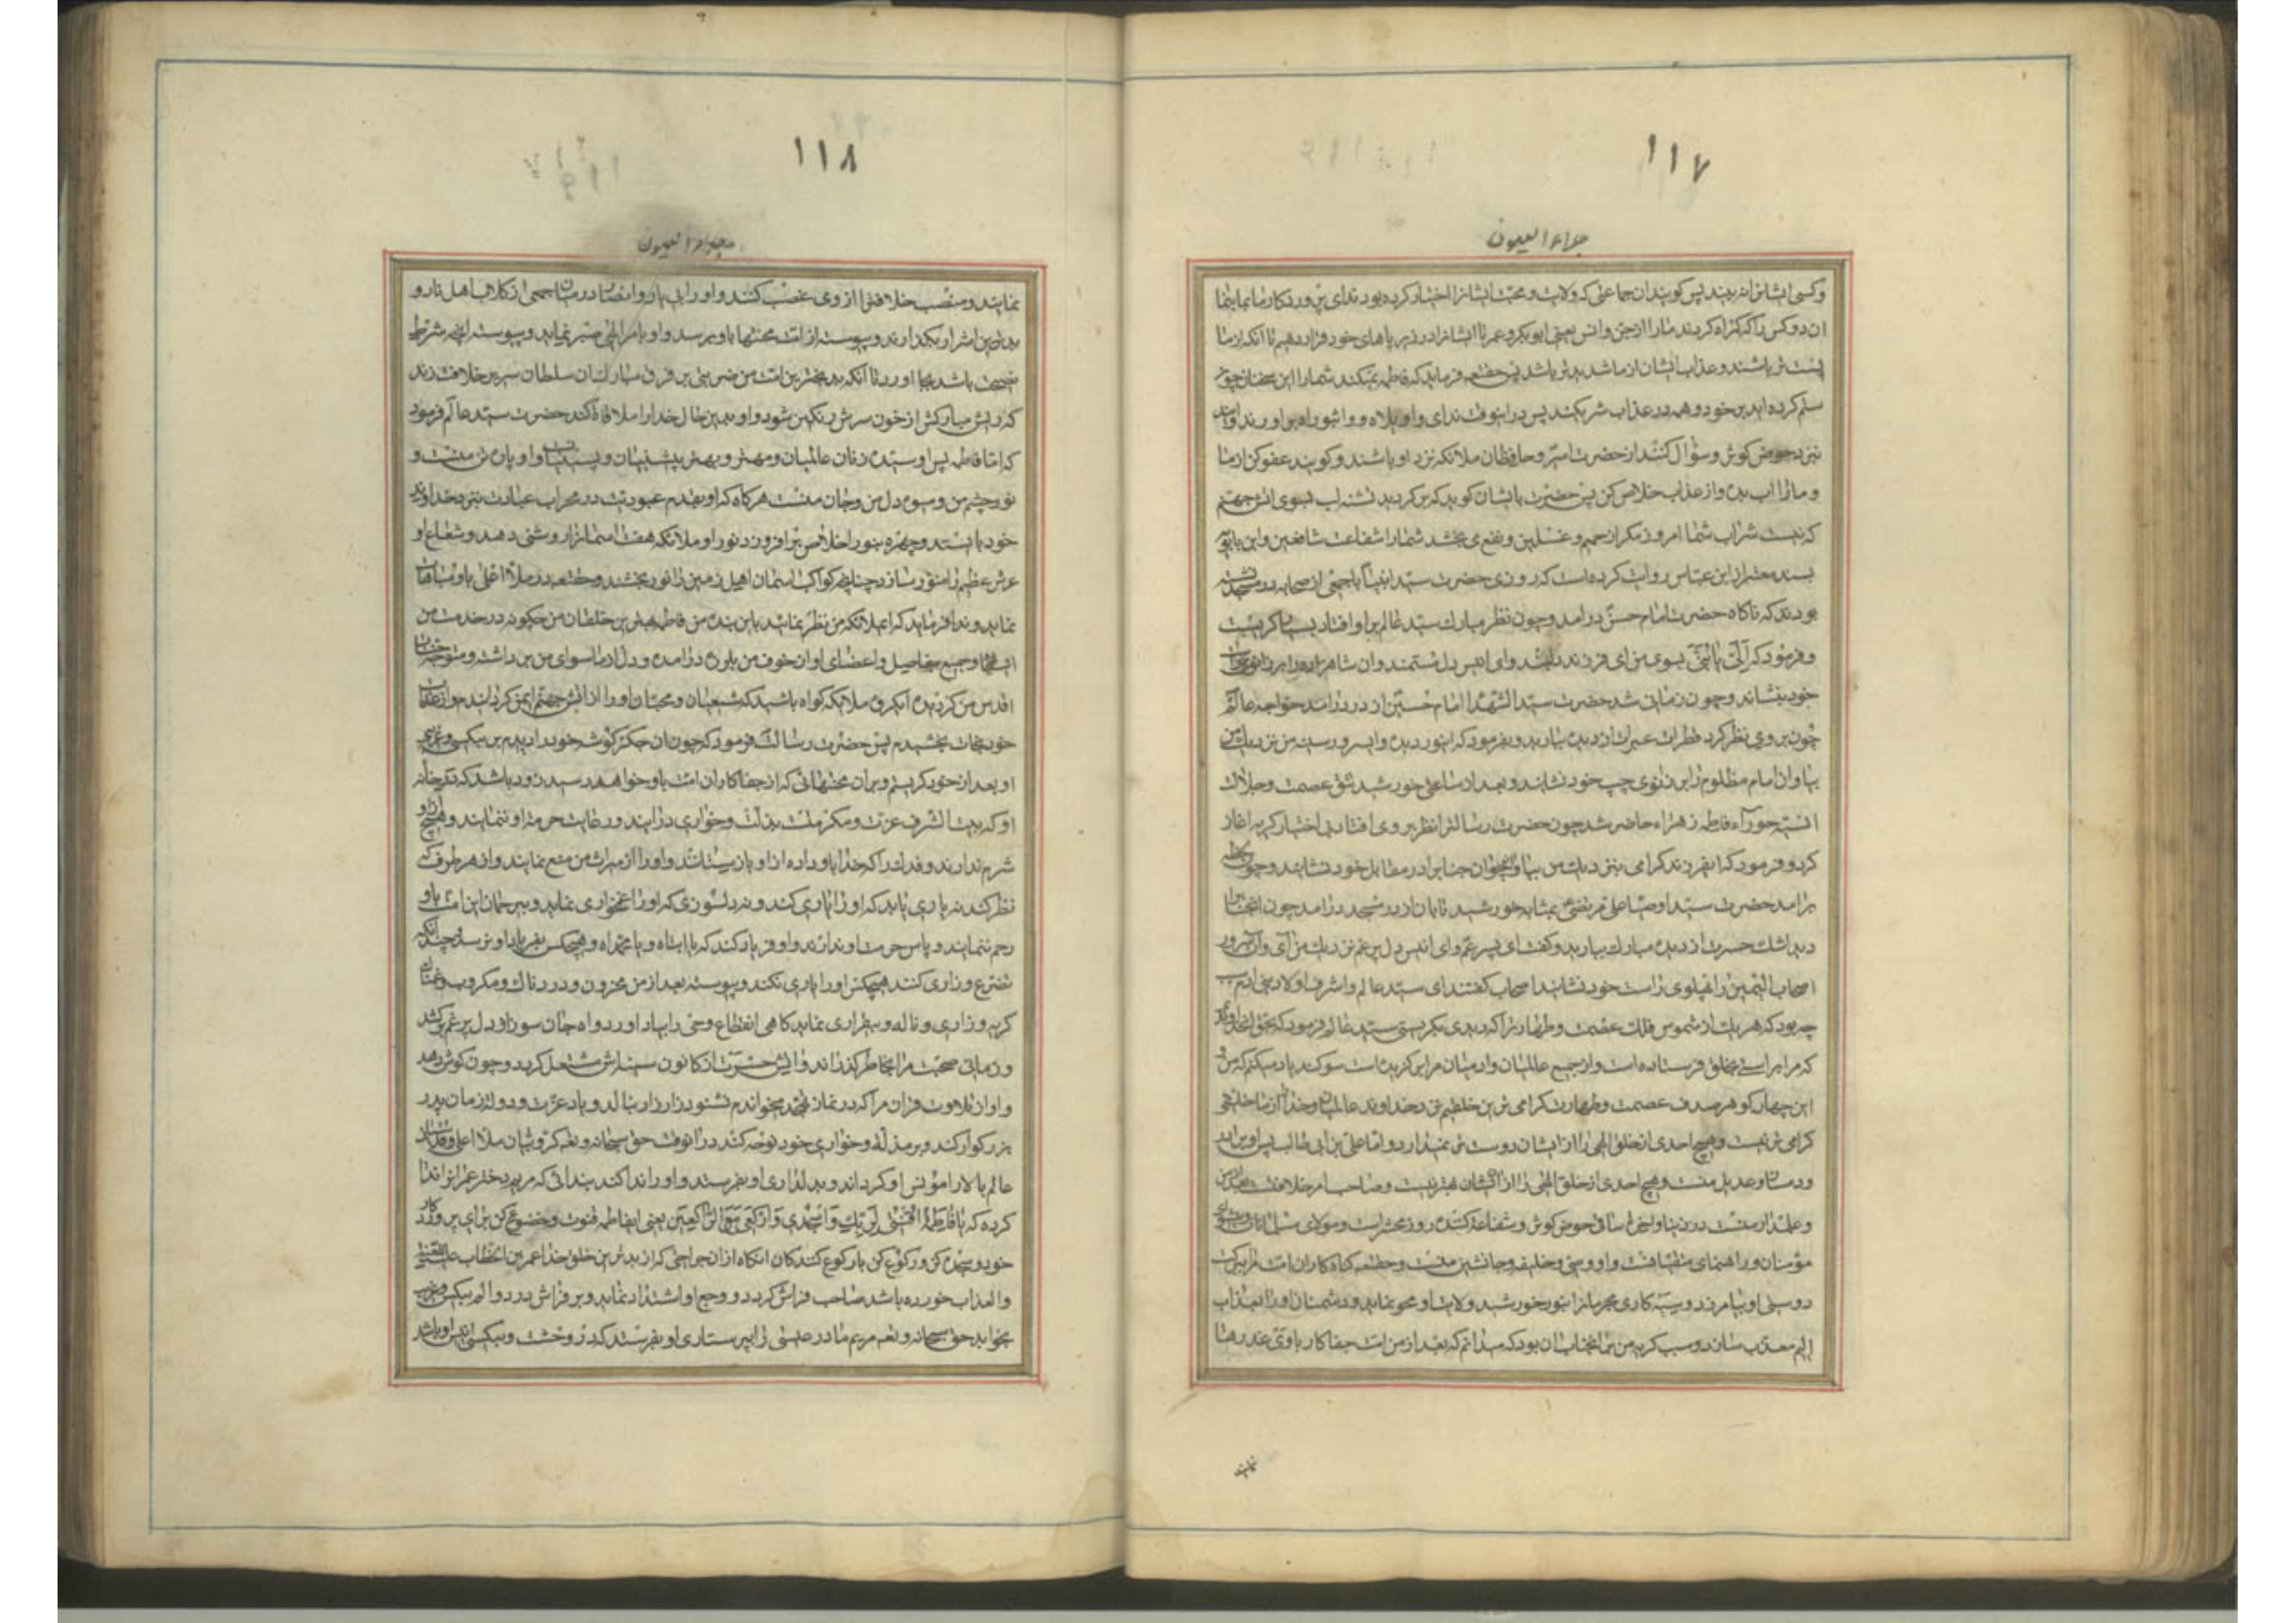 ١١٧
جلاء العیون
وکسی ایشانرا نه بیند پس کویند ان جماعتی که ولایت و محبت ایشانرا اختیار کرده بودند ای پروردکار ما بما بنما
ان دو کس را که کمراه کردند ما را از جن و انس یعنی ابوبکر و عمر تا ایشانرا در زیر پاهای خود قرار دهیم تا انکه از ما
پست تر باشند و عذاب ایشان از ما شدیدتر باشد پس حقتعالی فرماید که فایده نمیکند شما را این سخنان چون
ستم کرده اید بر خود و همه در عذاب شریکید پس در انوقت ندای واویلاه و واثبوراه براورند و ایند
بنزد حوض کوثر و سؤال کنند از حضرت امیر و حافظان ملائکه نزد او باشند و کویند عفو کن از ما
و ما را اب بده و از عذاب خلاص کن پس حضرت بایشان کوید که برکردید تشنه لب بسوی اتش جهنم
که نیست شراب شما امروز مکر از حمیم و غسلین و نفع نمی بخشد شما را شفاعت شافعین و ابن بابویه
بسند معتبر از ابن عباس روایت کرده است که روزی حضرت سید انبیا با جمعی از صحابه در مسجد نشسته
بودند که ناکاه حضرت امام حسن درامد و چون نظر مبارک سید عالم بر او افتاد بسیار کریست
و فرمود که الی یا بنی بسوی من ای فرزند دلبند و ای انیس دل مستمند و ان شاهزاده را بر زانوی راست
خود بنشاند و چون زمانی شد حضرت سید الشهدا امام حسین از در درامد خواجه عالم
چون بروی نظر کرد قطرات عبرات از دیده ببارید و بفرمود که ای نور دیده و ای سرور سینه من نزدیک من
بیا و ان امام مظلوم را بر زانوی چپ خود نشانید و بعد از ساعتی خورشید تتق عصمت و جلالت
انسیه حورآء فاطمه زهراء حاضر شد چون حضرت رسالترا نظر بر وی افتاد بی اختیار کریه اغاز
کرد و فرمود که ای فرزند کرامی بنزدیک من بیا و ان جنابرا در مقابل خود نشانید و چون
برامد حضرت سید اوصیا علی مرتضی بمثابه خورشید تابان از در مسجد درامد چون انجنابرا
دید اشک حسرت از دیده مبارک ببارید و کفت ای پسر عم و ای انیس دل پرغم نزدیک من آی و ان سرور
اصحاب الیمین را بپهلوی راست خود نشانید اصحاب کفتند ای سید عالم و اشرف اولاد بنی ادم
چه بود که هر یک از شموس فلک عصمت و طهارترا که دیدی بکریستی سید عالم فرمود که بحق انخداوندی
که مرا براستی بخلق فرستاده است و از جمیع عالمیان و ادمیان مرا برکزیده است سوکند یاد میکنم که من و
این چهار کوهر صدف عصمت و طهارت کرامی ترین خلقیم نزد خداوند عالمیان و خدا را از ما خلقی
کرامی تر نیست و هیچ احدی از خلق الهی را از ایشان دوست تر نمیدارد و اما علی بن ابی طالب پس او برادر
و دمساز و عدیل منست و هیچ احدی از خلق الهی را از ایشان بهتر نیست و صاحب امر خلافت بعد از من
و علمدار منست در دنیا و اخرت ساقی حوض کوثر و شفاعت کننده روز محشر است و مولای مسلمانان و پیشوای
مؤمنان و راهنمای متقیانست و او وصی و خلیفه و جانشین منست و حقتعالی کناه کاران امت مرا ببرکت
دوستی او بیامرزد و سیه کاری مجرمانرا بنور خورشید ولایت او محو نماید و دشمنان او را بعذاب
الیم معذب سازد و سبب کریه من بر انجناب ان بود که میدانم که بعد از من امت جفا کار با وی غدرها
نمایند
١١٨
جلاء العیون
نمایند و منصب خلافترا از وی غصب کنند و او را بی یار و انصار در میان جمعی از کلاب اهل نار و
بدترین اشرار بکذارند و پیوسته از امت محنتها باو برسد و او بامر الهی صبر نماید و پیوسته انچه شرط
نصیحت باشد بجا اورد تا آنکه بدبخترین امت من ضربتی بر فرق مبارک ان سلطان سریر خلافت زند
که ریش مبارکش از خون سرش رنکین شود و او بدین حال خدا را ملاقات کند حضرت سید عالم فرمود
که اما فاطمه پس او سیده زنان عالمیان و مهتر و بهتر پیشینیان و پسینیان و او پاره تن منست و
نور چشم من و میوه دل من و جان منست هرکاه که او بقدم عبودیت در محراب عبادت بنزد خداوند
خود بایستد و چهره بنور اخلاص برافروزد نور او ملائکه هفت اسمانرا روشنی دهد و شعاع او
عرش عظیم را منور سازد چنانچه کواکب اسمان اهل زمین را نور بخشند و حقتعالی در ملأ اعلی باو مباهات
نماید و ندا فرماید که ای ملائکه من نظر نمائید باین بنده من فاطمه بهترین خلقان من چکونه در خدمت من
ایستاده و جمیع مفاصیل و اعضای او از خوف من بلرزه درامده و دل از ماسوای من برداشته و متوجه جناب
اقدس من کردیده ایکروه ملائکه کواه باشید که شیعیان و محبان او را از اتش جهنم ایمن کردانیدم و از عذاب
خود نجات بخشیدم پس حضرت رسالت فرمود که چون ان جکر کوشه خود را دیدم بر بیکسی و غریبی
او بعد از خود کریستم و بر ان محنتهائی که از جفا کاران امت باو خواهد رسید زود باشد که در خانه
او که بیت الشرف عزت و مکرمتست بذلت و خواری درایند و رعایت حرمت او ننمایند و هیچ
شرم ندارند و فدک را که خدا باو داده از او بازستانند و او را از میراث من منع نمایند و از هر طرف که
نظر کند نه یاری یابد که او را یاری کند و نه دلسوزی که او را غمخواری نماید و بیرحمان این امت باو
رحم ننمایند و پاس حرمت او ندارند و او فریاد کند که یا ابتاه و یا محمداه و هیچکس بفریاد او نرسد و چندانکه
تضرع و زاری کند هیچکس او را یاری نکند و پیوسته بعد از من محزون و دردناک و مکروب و غمناک
کریه و زاری و ناله و بیقراری نماید کاهی انقطاع وحی را بیاد اورد و اه جان سوز از دل پرغم برکشد
و زمانی صحبت مرا بخاطر کذراند و اتش حسرت از کانون سینه اش مشتعل کردد و چون کوش دهد
و اواز تلاوت قران مرا که در نماز تهجد میخواندم نشنود زار زار بنالد و یاد عزت و دولت زمان پدر
بزرکوار کند و بر مذلت و خواری خود نوحه کند در انوقت حق سبحانه و تعالی کروبیان ملأ اعلی و قدسیان
عالم بالا را مونس او کرداند و بدلداری او بفرستد و او را ندا کند بندائی که مریم دختر عمرانرا ندا
کرده که یا فاطمة اقنتی لربک و اسجدی و ارکعی مع الراکعین یعنی ای فاطمه قنوت و خضوع کن برای پروردکار
خود و سجده کن و رکوع کن با رکوع کنندکان انکاه از ان جراحتی که از بدترین خلق خدا عمر بن الخطاب علیه اللعنة
والعذاب خورده باشد صاحب فراش کردد و وجع او اشتداد نماید و بر فراش درد و الم بیکس و غریب
بخوابد حق سبحانه و تعالی مریم مادر عیسی را بپرستاری او بفرستد که در وحشت و بیکسی انیس او باشد